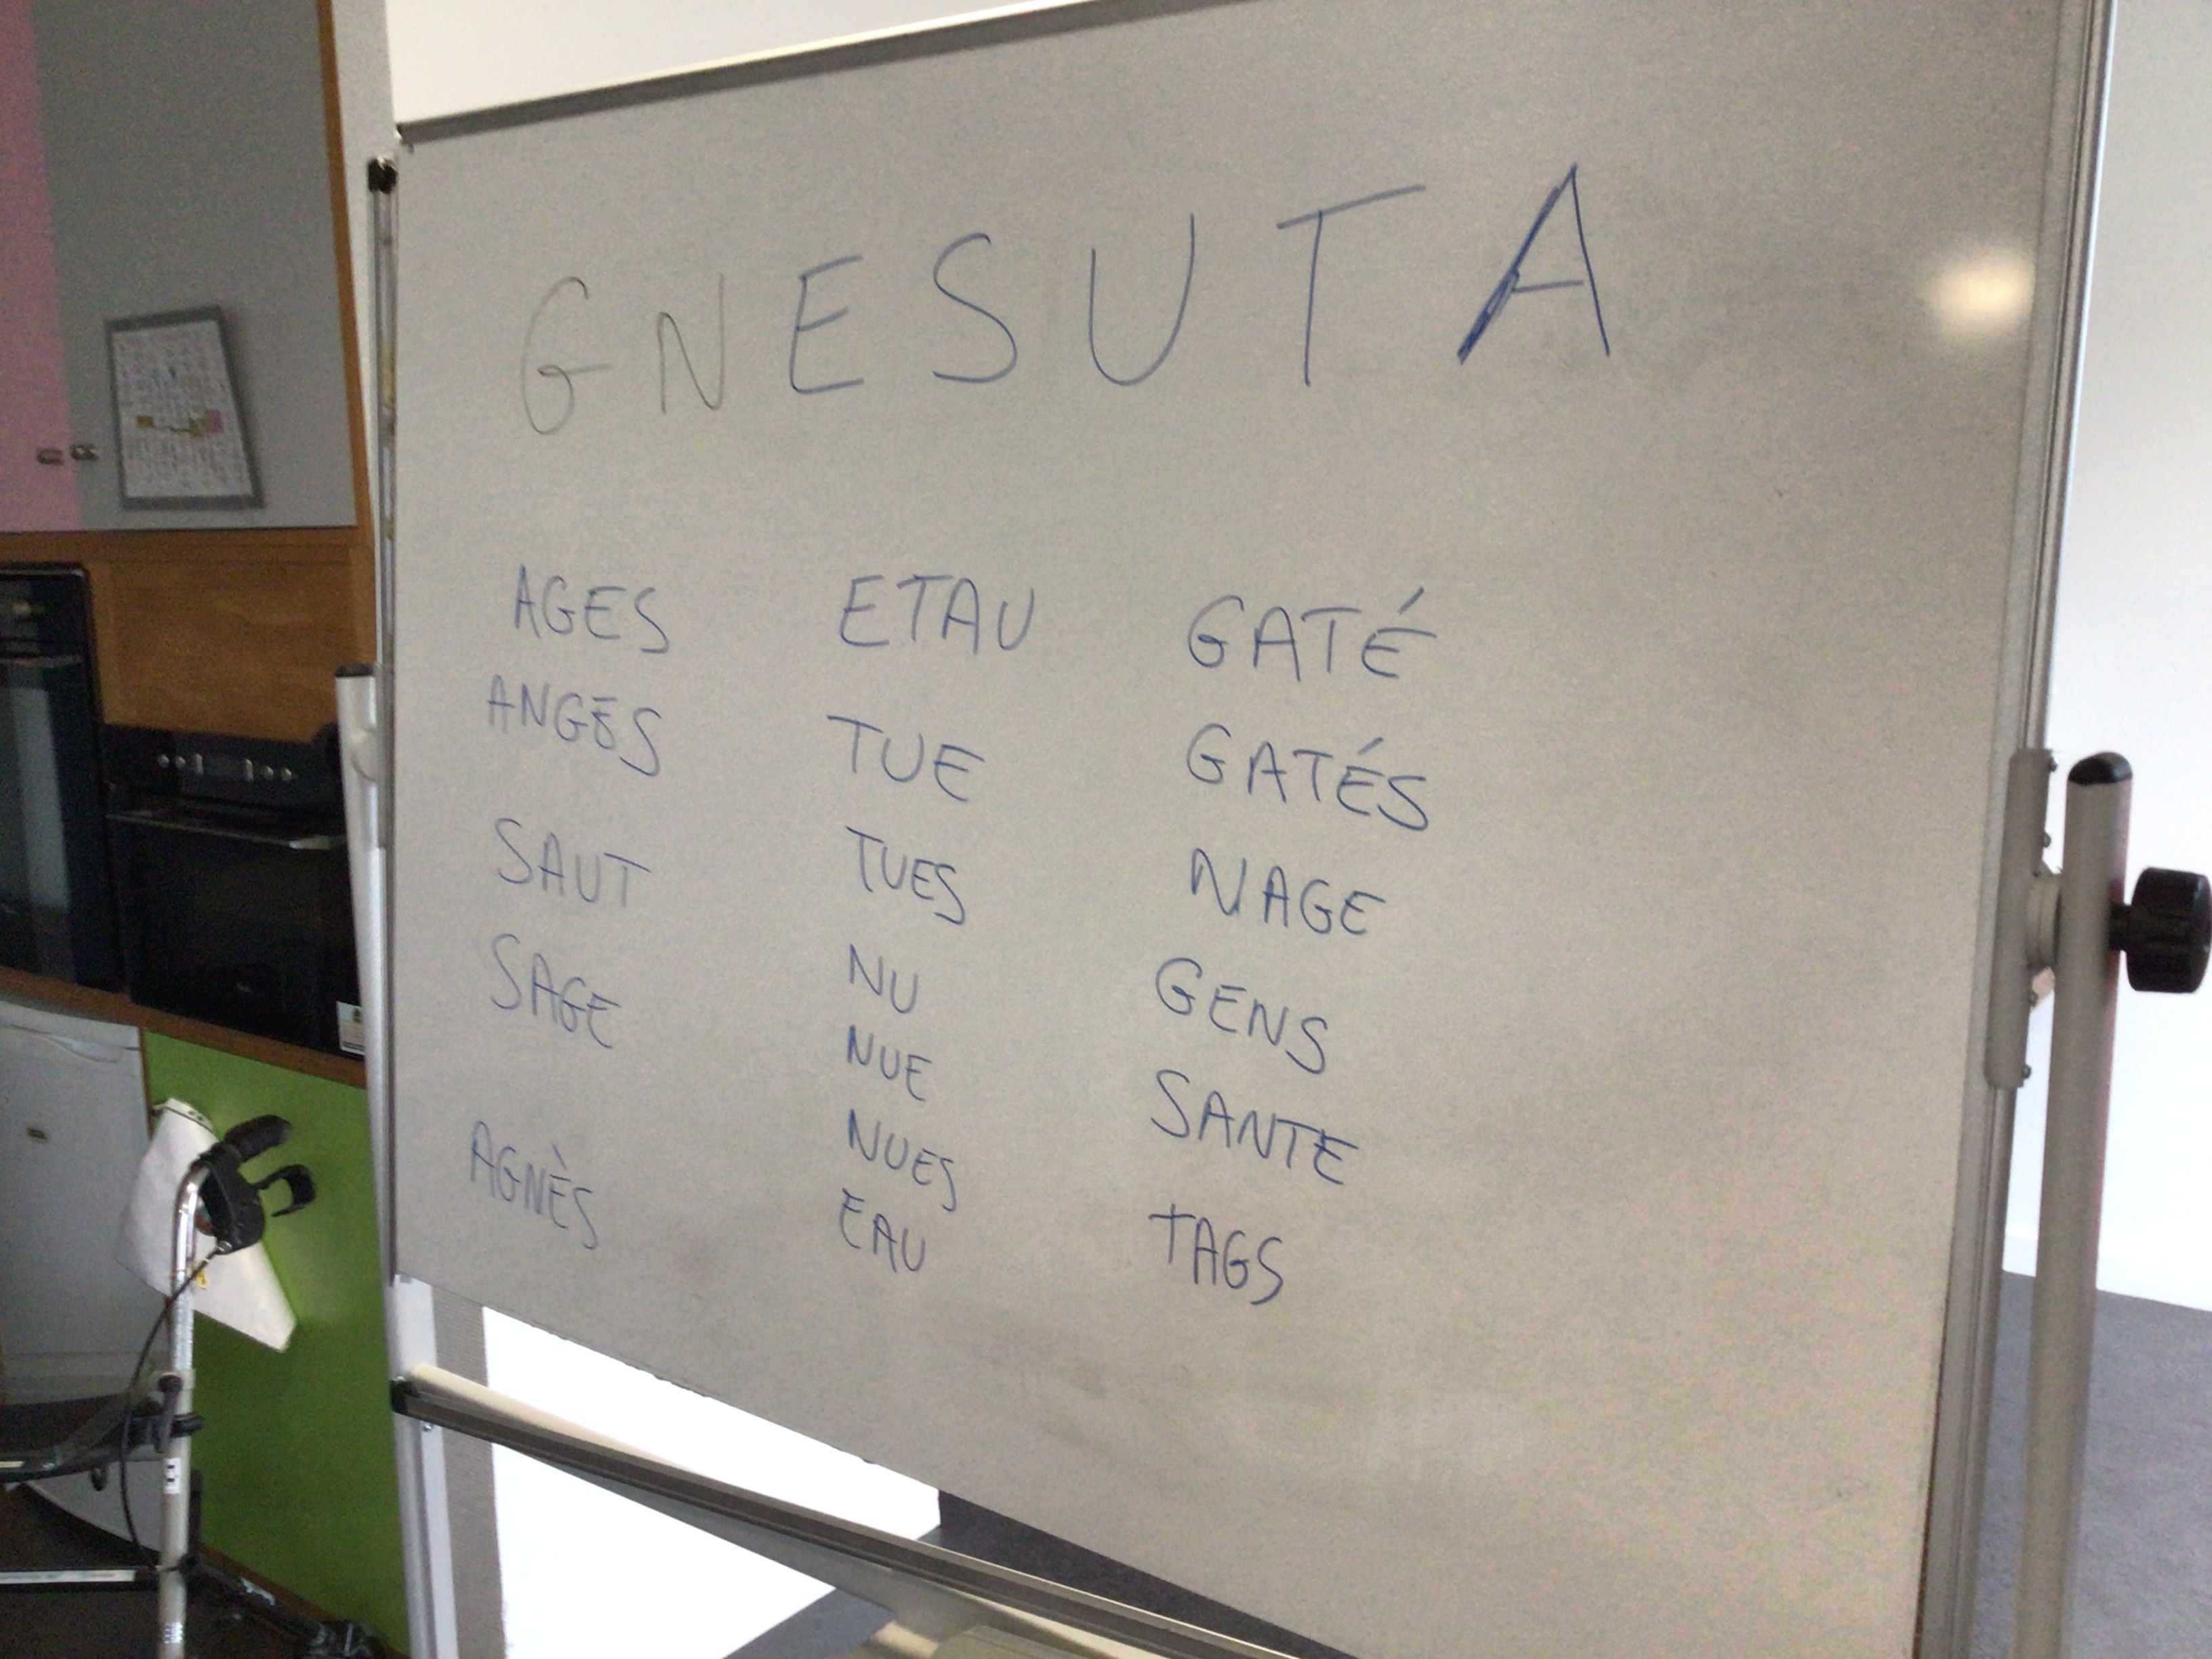 GNESUTA
AGES
ANGES
SAUT
SAGE
AGNÈS
ETAU
TUE
TUES
NU
NUE
NUES
EAU
GATÉ
GATÉS
NAGE
GENS
SANTE
TAGS